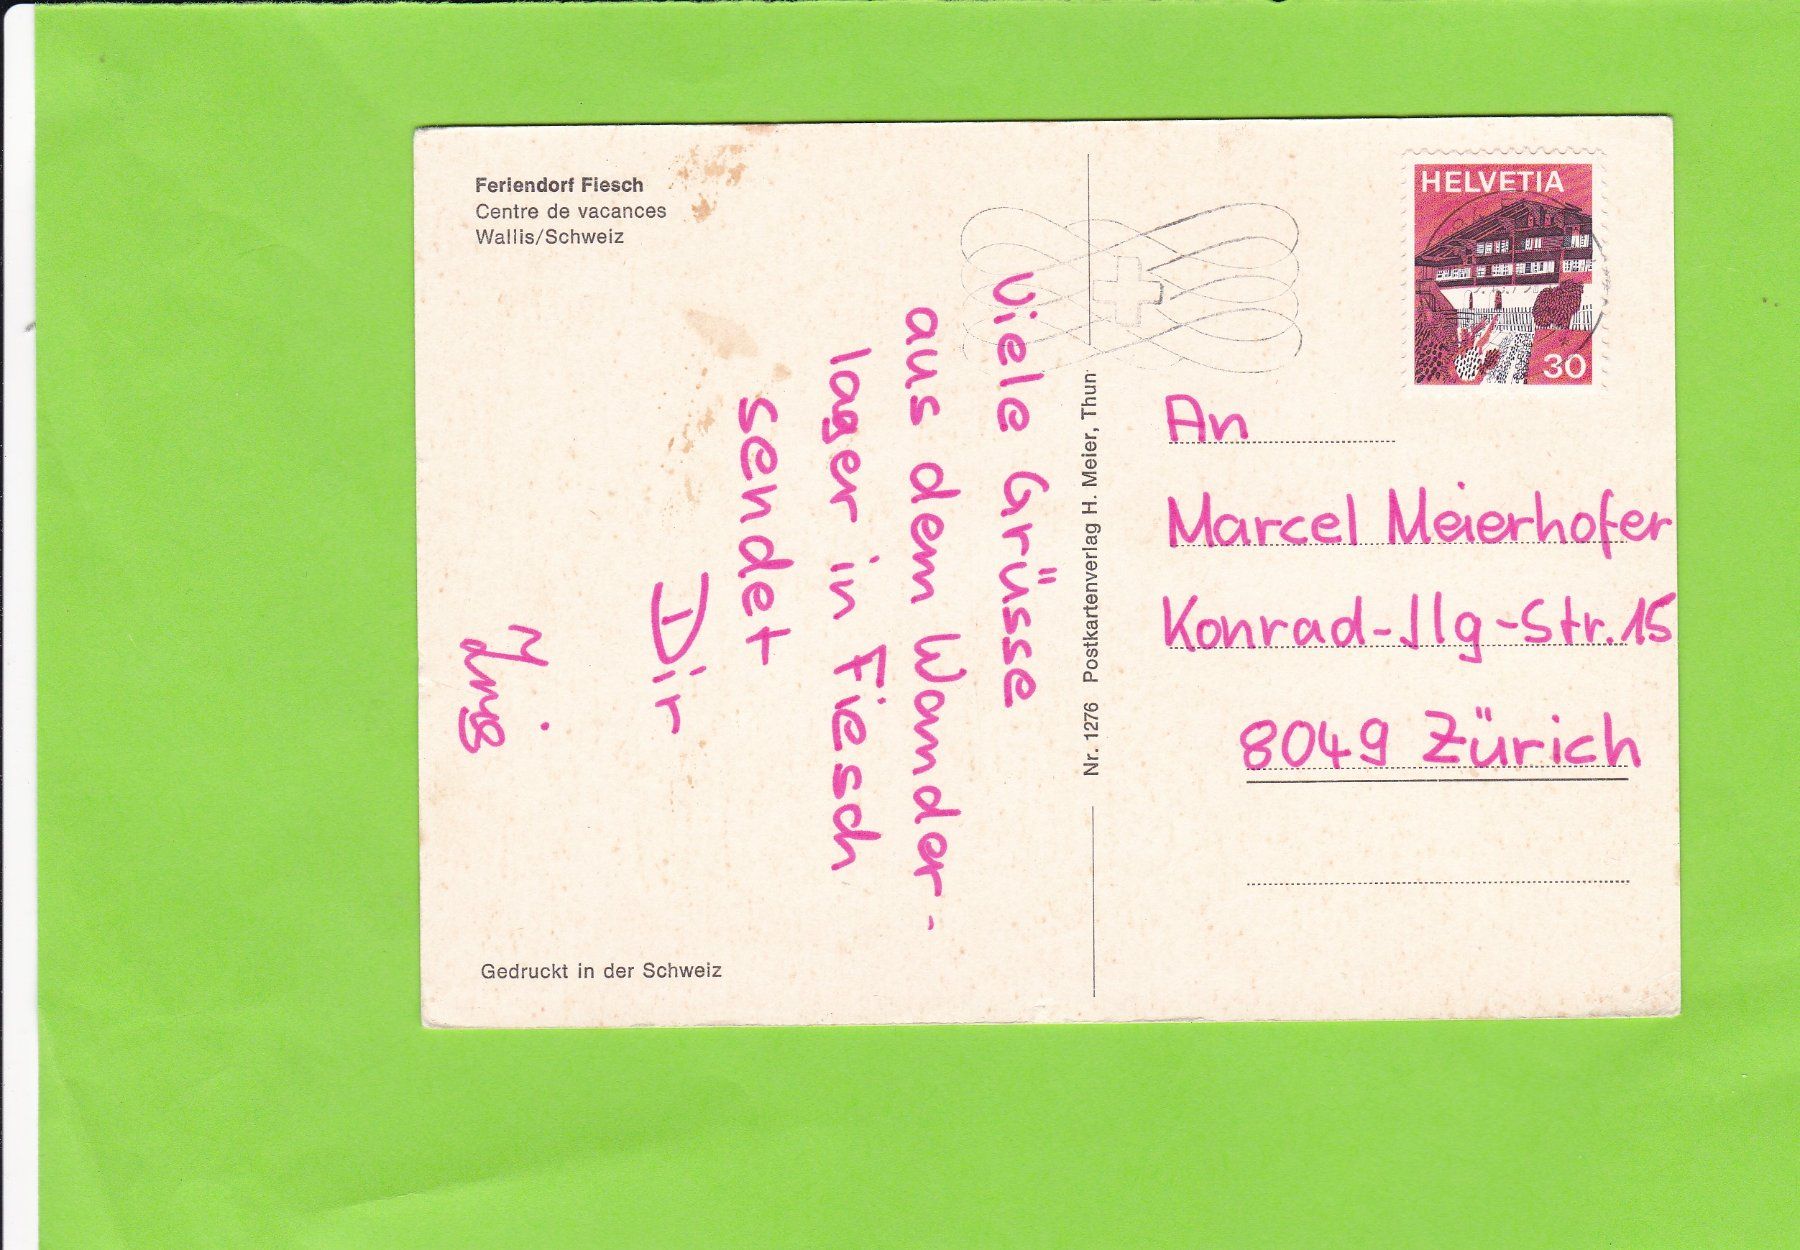 Feriendorf Fiesch
Centre de vacances
Wallis/Schweiz
Viele Grüsse
aus dem Wander-
lager in Fiesch
sendet
Dir
Gedruckt in der Schweiz
Nr. 1276 Postkartenverlag H. Meier, Thun
HELVETIA
30
An
Marcel Meierhofer
Konrad-Ilg-Str. 15
8049 Zürich